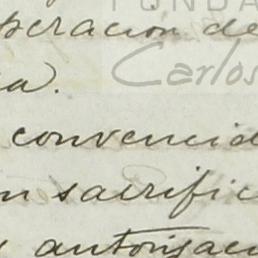 FUNDA
peracion de
Carlos
a.
convencid
n sacrific
autorizaci